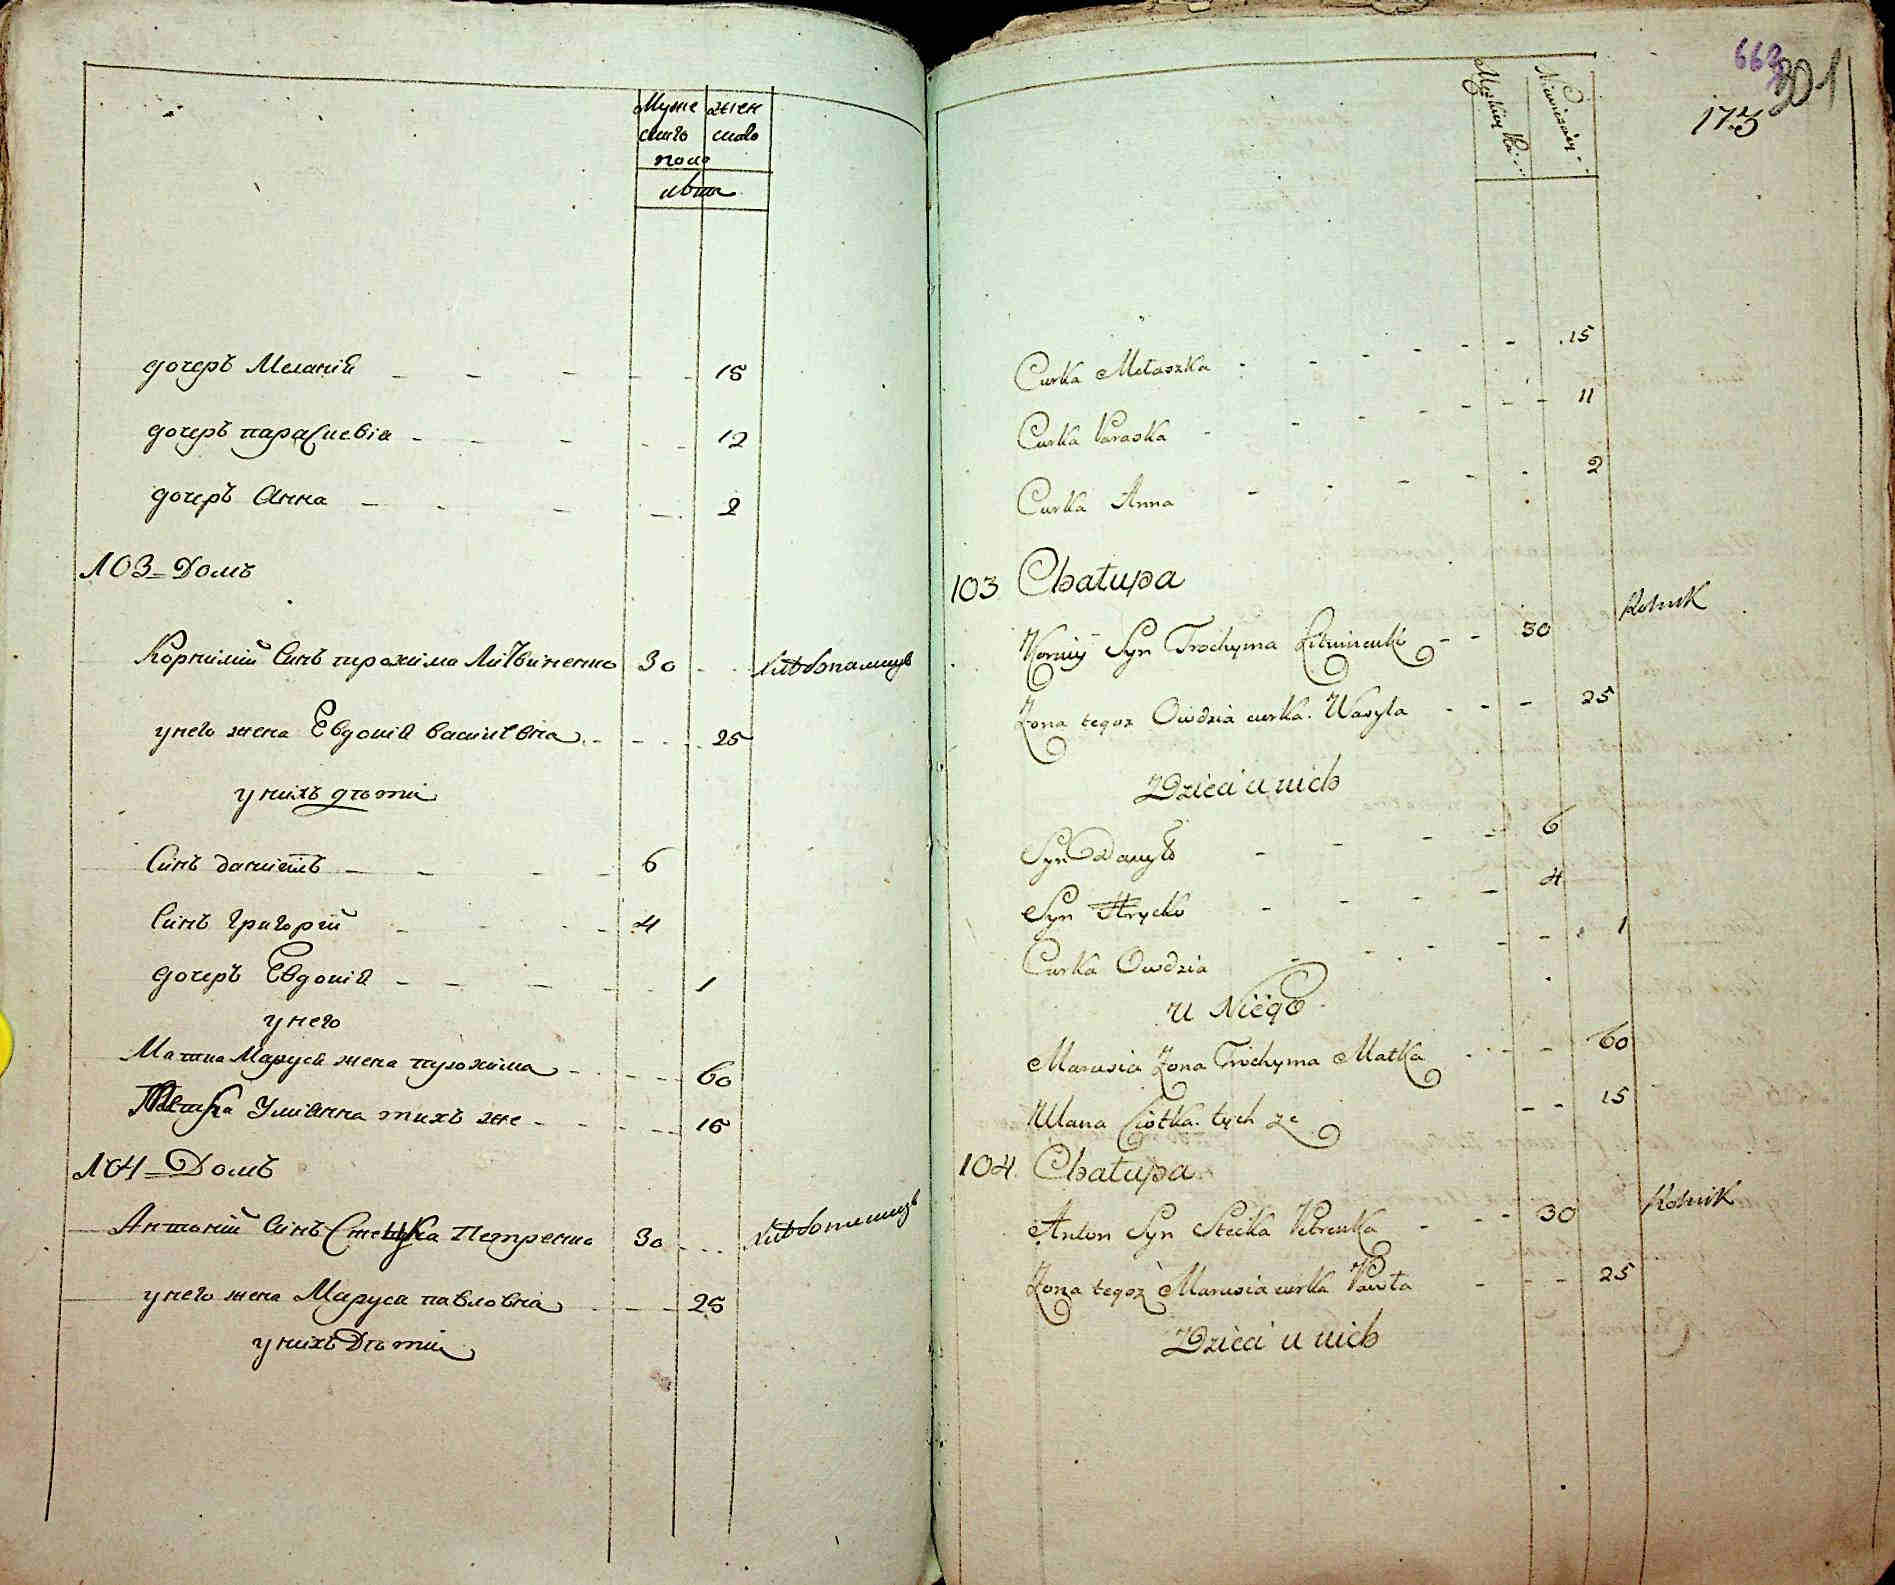 Муже
скаго
полу
жен
скаго
лѣта
дочерь Меланія 15
дочерь параскевія 12
дочерь Анна 2
103 Домъ
Корнилій Синъ трохима Литвиненко 30 Хлѣбопашецъ
у него жена Евдокія василѣвна 25
у нихъ дѣти
Синъ даніилъ 6
Синъ григорій 4
дочерь Евдокія 1
у него
Матка Маруся жена трохима 60
Тетка Уліянна тихъ же 15
104 Домъ
Антоній Синъ Стецка Петренко 30 Хлѣбопашецъ
у него жена Маруся павловна 25
у нихъ Дѣти
663
301
173
Curka Mełaszka 15
Curka Paraska 11
Curka Anna 2
103 Chałupa
Korniy Syn Trochyma Litwinenko 30 Rolnik
Zona tegoz Owdzia curka Wasyla 25
Dzieci u nich
Syn Danyło 6
Syn Hrycko 4
Curka Owdzia 1
u Niego
Marusia Zona Trochyma Matka 60
Ulana Ciotka tych ze 15
104 Chałupa
Anton Syn Stecka Petrenka 30 Rolnik
Zona tegoz Marusia curka Pawła 25
Dzieci u nich